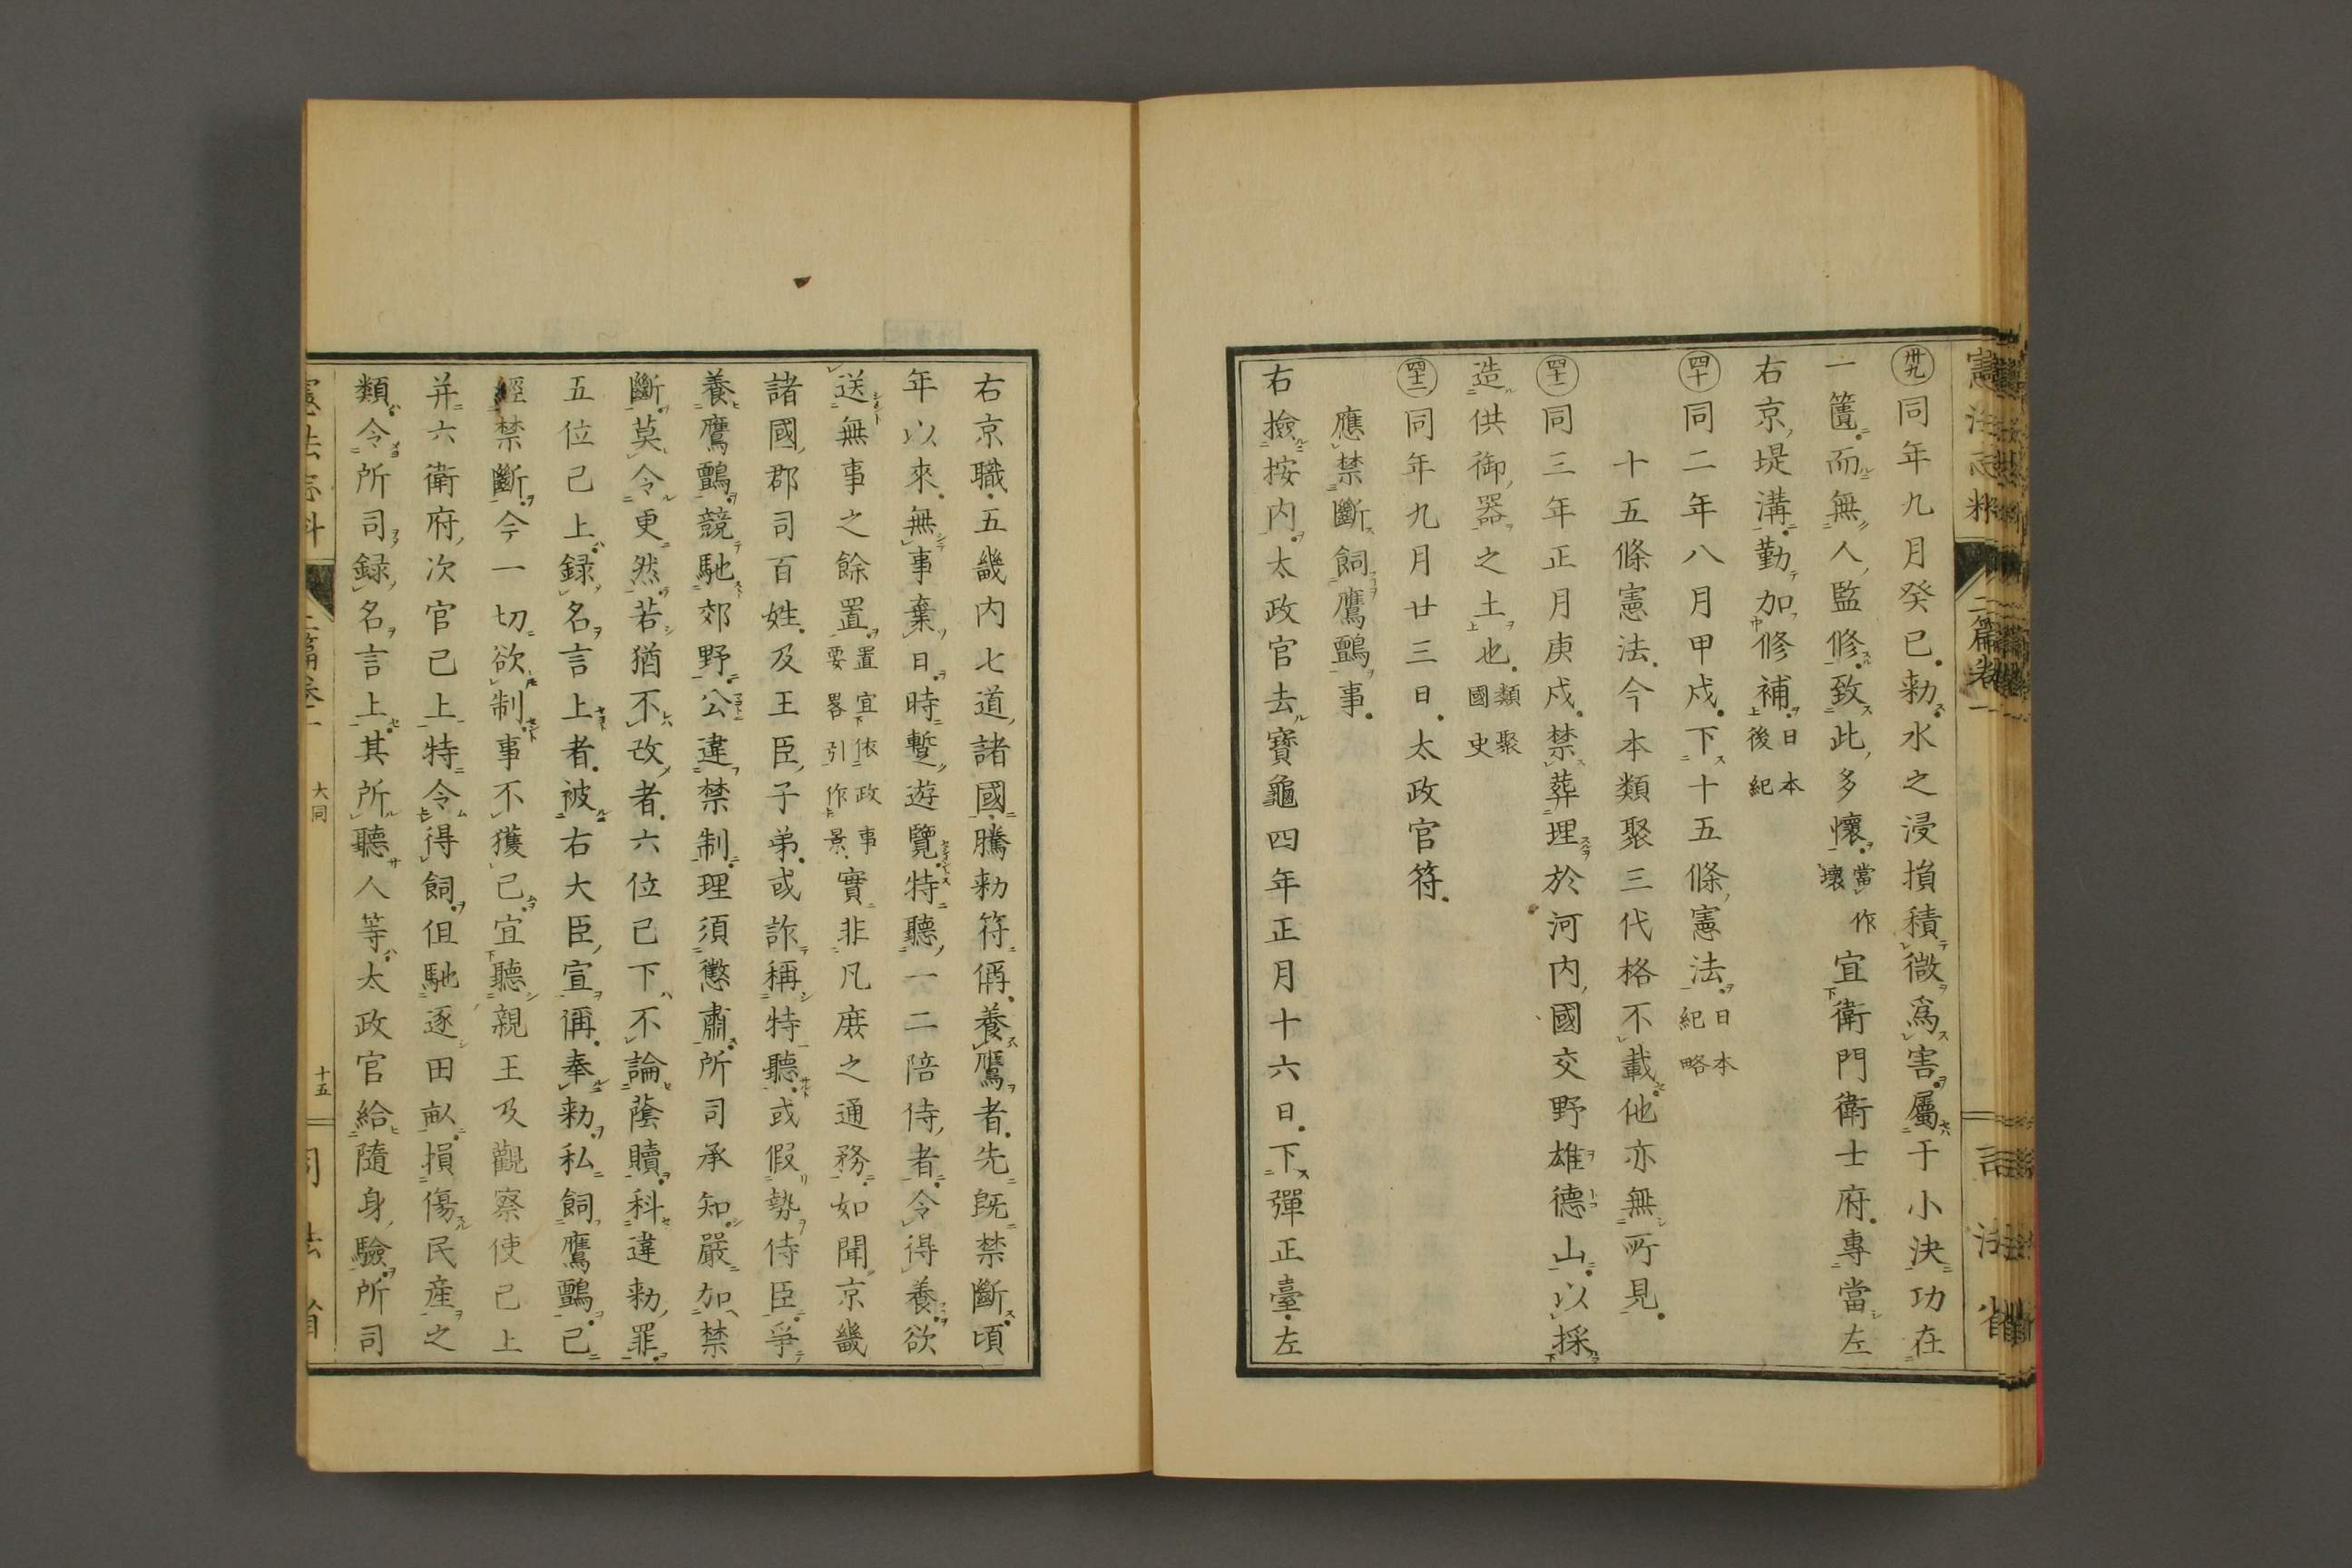 卅九同年九月癸巳勅水之浸損積微爲害屬于小決功在
一簣而無人監修致此多懷當作壞宜衛門衛士府專當左
右京堤溝勤加修補日本後紀
四十同二年八月甲戌下十五條憲法日本紀略
十五條憲法今本類聚三代格不載他亦無所見
四十一同三年正月庚戌禁葬埋於河内國交野雄德山以採
造供御器之土也類聚國史
四十二同年九月廿三日太政官符
應禁斷飼鷹鸇事
右撿按内太政官去寶龜四年正月十六日下彈正臺左
右京職五畿内七道諸國騰勅符偁養鷹者先既禁斷頃
年以來無事棄日時蹔遊覽特聽一二陪侍者令得養欲
送無事之餘置置宜依政事要畧引作景實非凡庶之通務如聞京畿
諸國郡司百姓及王臣子弟或詐稱特聽或假勢侍臣爭
養鷹鸇競馳郊野公違禁制理須懲肅所司承知嚴加禁
斷莫令更然若猶不改者六位已下不論蔭贖科違勅罪
五位已上録名言上者被右大臣宣偁奉勅私飼鷹鸇已
經禁斷今一切欲制事不獲已宜聽親王及觀察使已上
并六衛府次官已上特令得飼但馳逐田畝損傷民産之
類令所司録名言上其所聽人等太政官給隨身驗所司
大同
十五